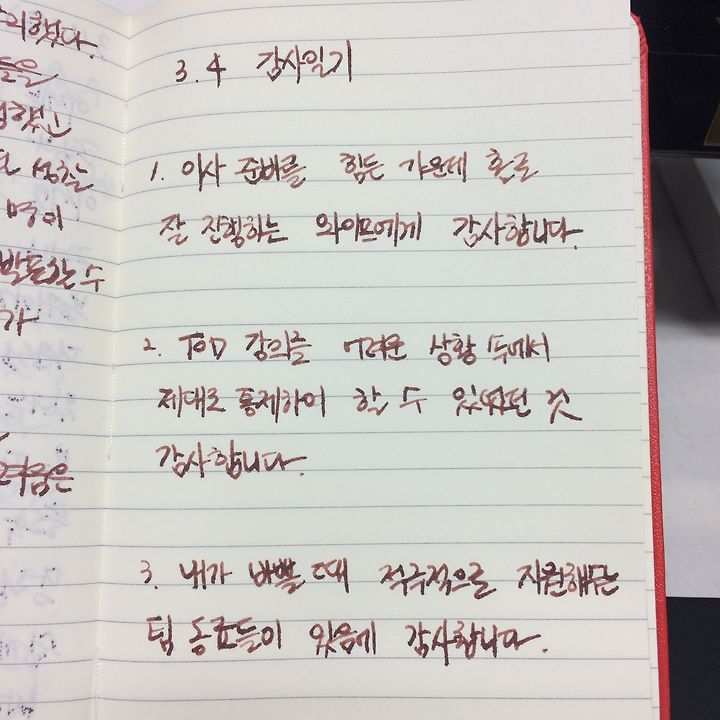 리했다.
들을
성찰
명이
수
가
3.4 감사일기
1. 이사 준비를 힘든 가운데 홀로
잘 진행하는 와이프에게 감사합니다.
2. TOD 강의를 어려운 상황 속에서
제대로 통제하여 할 수 있었던 것
감사합니다.
3. 내가 바쁠 때 적극적으로 지원해주는
팀 동료들이 있음에 감사합니다.